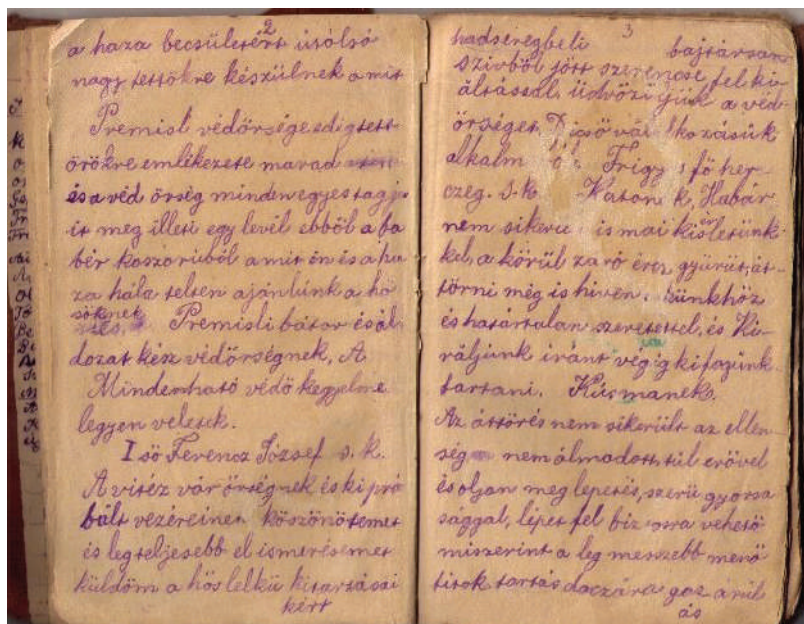 2
a haza becsületért utolsó
nagy tettökre készülnek a mit
Premisl védőrsége edig tett
örökre emlékezete marad
és a véd örség minden egyes tagja
it meg illeti egy levél ebböl a ba
bér koszorúból a mit én és a ha
za hála telten ajánlunk a hö
söknek
Premisli bátor és ál
dozat kész védőrségnek, A
Mindenható védö kegyelme
legyen veletek.
I sö Ferencz József s. k.
A vitéz vár örségnek és ki pró
bált vezéreinek köszönötemet
és leg teljesebb el ismerésemet
küldöm a hös lelkü kitartásai
kért
3
hadseregbeli bajtársan
szivböl jött szerencse fel kiá
áltással, üdvözöljük a véd
örséget,
alkalm Frigy s fö her
czeg. s. k. Katon k, Habár
nem sikerü is mai kisérletünk
kel, a körül záró ércz gyürüt át
törni még is hiven, sünkhöz
és határtalan szeretettel, és Ki
rályunk iránt végig ki fogunk
tartani, Kusmanek.
Az áttörés nem sikerült az ellen
ség nem álmodott, túl erövel
és oljan meg lepetés, szerü gyorsa
sággal, lépet fel biz osra vehetö
miszerint a leg messzebb menö
titok tartás daczára gaz árúl
ás